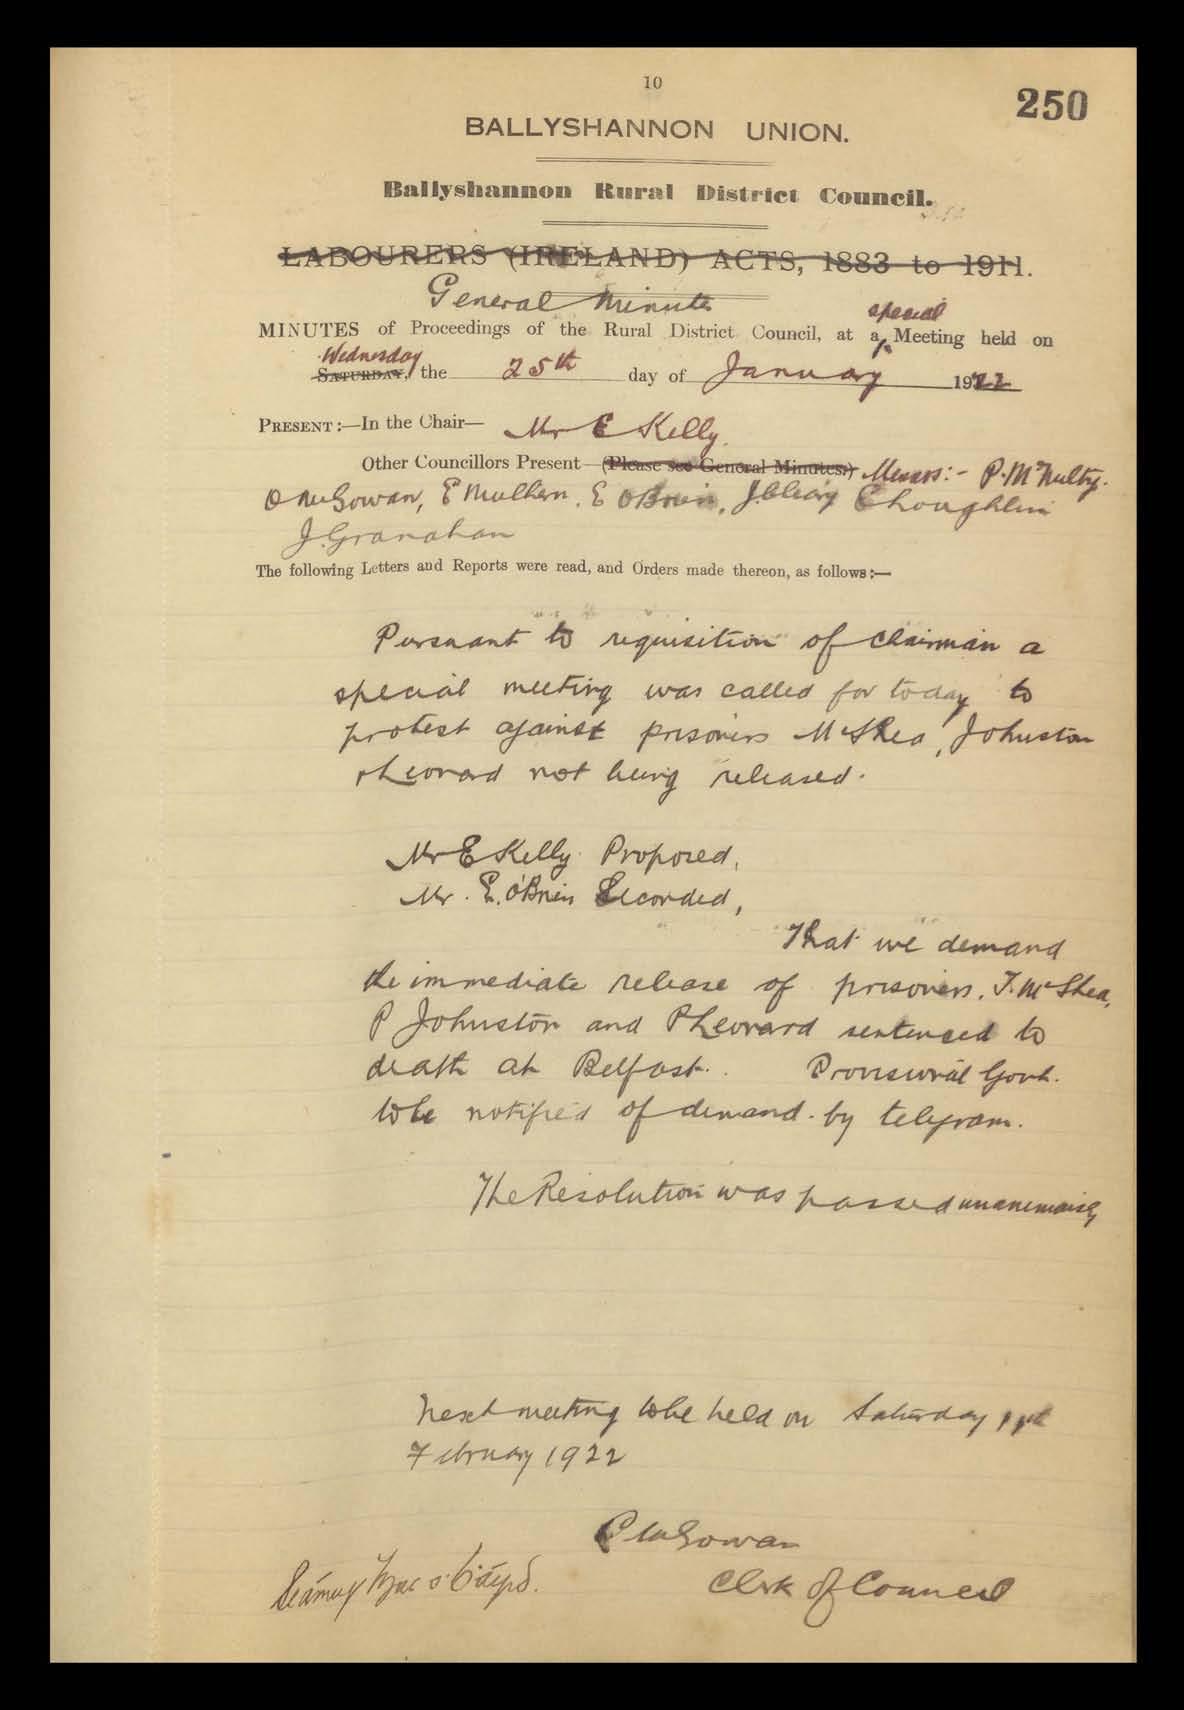 10
250
BALLYSHANNON UNION.
Ballyshannon Rural District Council.
LABOURERS (IRELAND) ACTS, 1883 to 1911.
General Minutes
special
MINUTES of Proceedings of the Rural District Council, at a Meeting held on
Wednesday
SATURDAY, the 25th day of January 1922
PRESENT:—In the Chair— Mr E Kelly.
Other Councillors Present—(Please see General Minutes.) Messrs:- P. McNulty.
O McGowan, E Mulhern, E O'Brien, J. Cleary E Loughlin
J. Granahan
The following Letters and Reports were read, and Orders made thereon, as follows:—
Pursuant to requisition of Chairman a
special meeting was called for today to
protest against prisoners McShea, Johnston
& Leonard not being released.
Mr E Kelly Proposed,
Mr. E. O'Brien Seconded,
That we demand
the immediate release of prisoners. T. McShea,
P Johnston and P Leonard sentenced to
death at Belfast. Provisional Govt.
to be notified of demand by telegram.
The Resolution was passed unanimously
Next meeting to be held on Saturday
February 1922
P McGowan
Clerk of Council